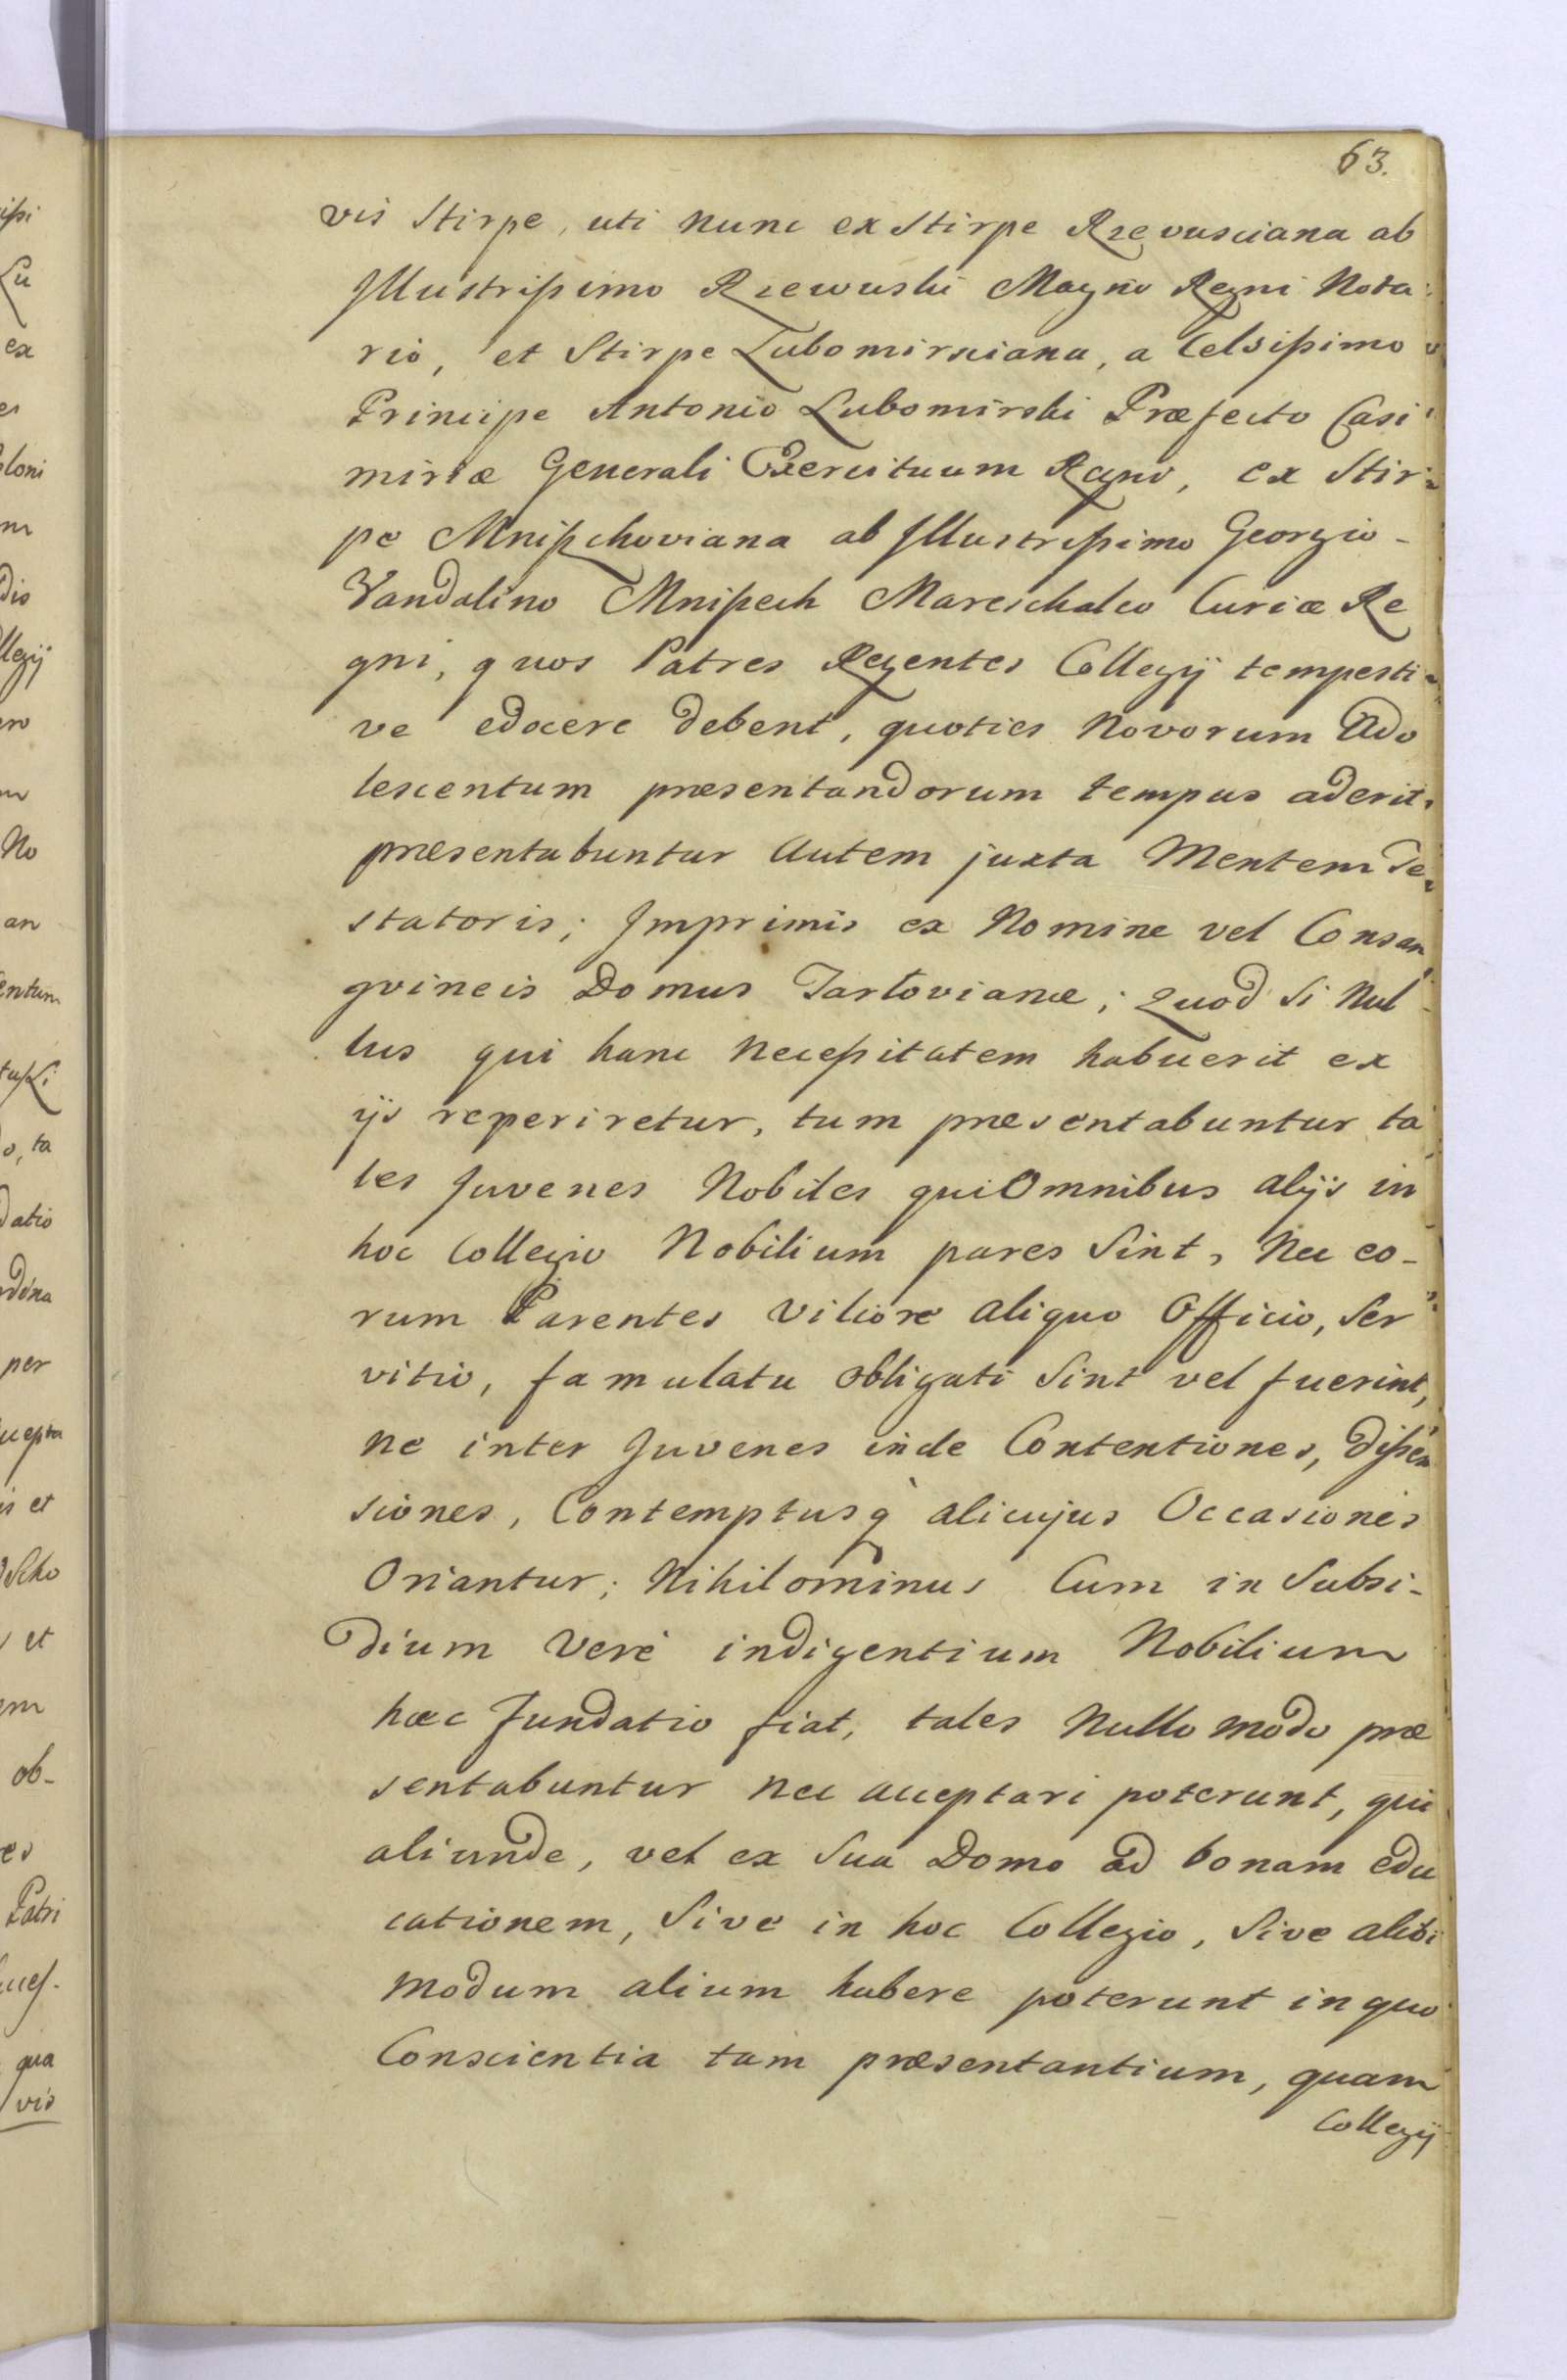 63.
vis Stirpe, uti nunc ex Stirpe Rzevusciana ab
Jllustrißimo Rzewuski Magno Regni Nota-
rio, et Stirpe Lubomirsciana, a Celsißimo
Principe Antonio Lubomirski Præfecto Casi-
miriæ Generali Exercituum Regni, ex Stir-
pe Mnißchoviana ab Jllustrißimo Georgio-
Vandalino Mnißech Mareschalco Curiæ Re
gni, quos Patres Regentes Collegij tempesti-
ve edocere debent, quoties Novorum Ado
lescentum præsentandorum tempus aderit.
præsentabuntur autem juxta Mentem Te-
statoris; Jmprimis ex Nomine vel Consan-
gvineis Domus Tarłovianæ; Quod Si Nul-
lus qui hanc Necepßitatem habuerit ex
ijs reperiretur, tum præsentabuntur ta-
les Juvenes Nobiles qui Omnibus alijs in
hoc Collegio Nobilium pares Sint, Nec eo-
rum Parentes Viliore aliquo Officio, Ser-
vitio, famulatu obligati Sint vel fuerint,
ne inter Juvenes inde Contentiones, dißen
siones, Contemptusq̀ alicujus Occasiones
Oriantur; Nihilominus Cum in Subsi-
dium Verè indigentium Nobilium
hæc Fundatio fiat, tales Nullo modo præ
sentabuntur nec acceptari poterunt, qui
aliunde, vel ex Sua Domo ad bonam edu
cationem, Sive in hoc Collegio, Sive alibi
Modum alium habere poterunt in quo
Conscientia tam præsentantium, quam
Collegij
ißi
Lu
ex
es
loni
m
dis
llegij
No
an
entum
o, ta
datio
rdina
per
cepta
is et
Scho
et
em
ob-
es
Patri
qua
vis